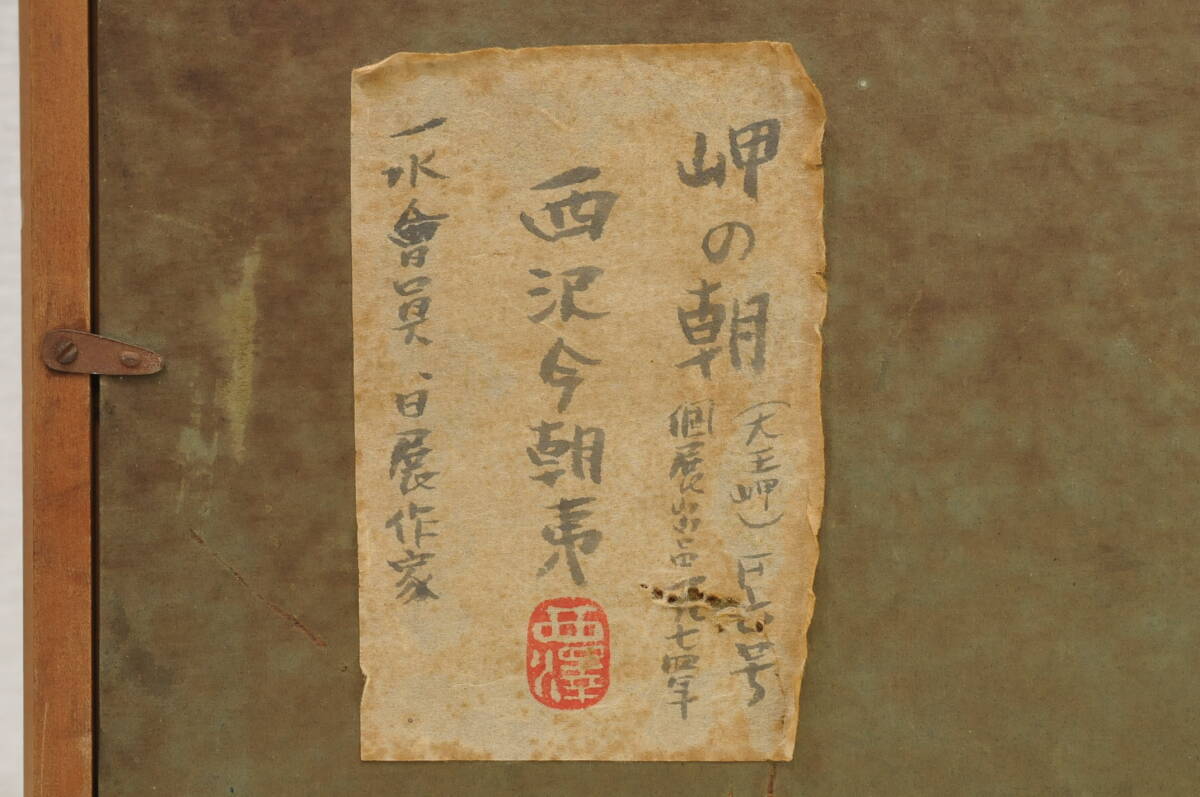 岬の朝
(大王岬) F六号
個展出品 一九七四年
西沢今朝夷
西澤
一水會員、日展作家